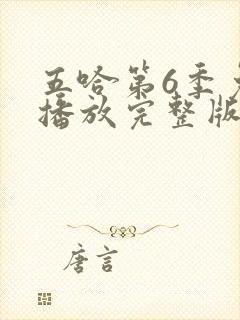 五哈第6季
播放完整版
唐言